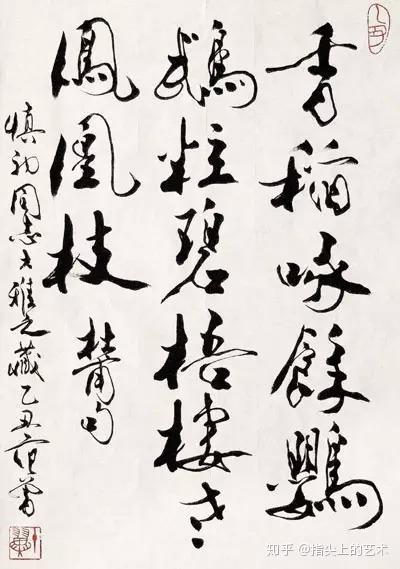 香稻啄餘鸚
鵡粒碧梧棲老
鳳凰枝 杜甫句
慎初同志大雅之藏乙丑范曾
知乎 @指尖上的艺术